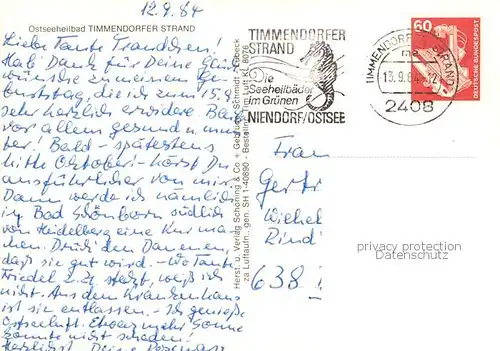 12.9.84
Ostseeheilbad TIMMENDORFER STRAND
Liebe Tante Traudchen!
Hab' Dank für Deine Glück-
wünsche zu meinem Ge-
burtstag, die ich zum 15.9.
sehr herzlich erwidere.
vor allem gesund und mun-
ter! Bald - spätestens
Mitte Oktober - hörst Du
ausführlicher von mir.
Dann werde ich nämlich
in Bad Schönborn südlich
von Heidelberg eine Kur ma-
chen. Drück' den Daumen,
daß sie gut wird. - Wo Tante
Friedel z.Zt. steckt, weiß ich
nicht. Aus dem Krankenhaus
ist sie entlassen. - Ich genieße
Ostseeluft. Etwas mehr Sonne
könnte nicht schaden!
Herzlichst Deine
Herst. u. Verlag Schöning & Co + Gebrüder Schmidt, Lübeck
za Luftaufn., gen. SH 1-40890 - Bestellnr. Tim Luft KL 8076
TIMMENDORFER
STRAND
Die
Seeheilbäder
im Grünen
NIENDORF/OSTSEE
TIMMENDORFER STRAND
mz
13.9.84-12
2408
60
DEUTSCHE BUNDESPOST
Frau
Gertr
Wiehel
Rind
638
privacy protection
Datenschutz